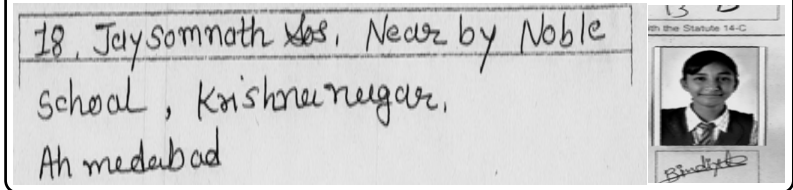 18, Jaysomnath Sos, Near by Noble
School, Krishnanagar,
Ahmedabad
13
th the Statute 14-C
Bindiya